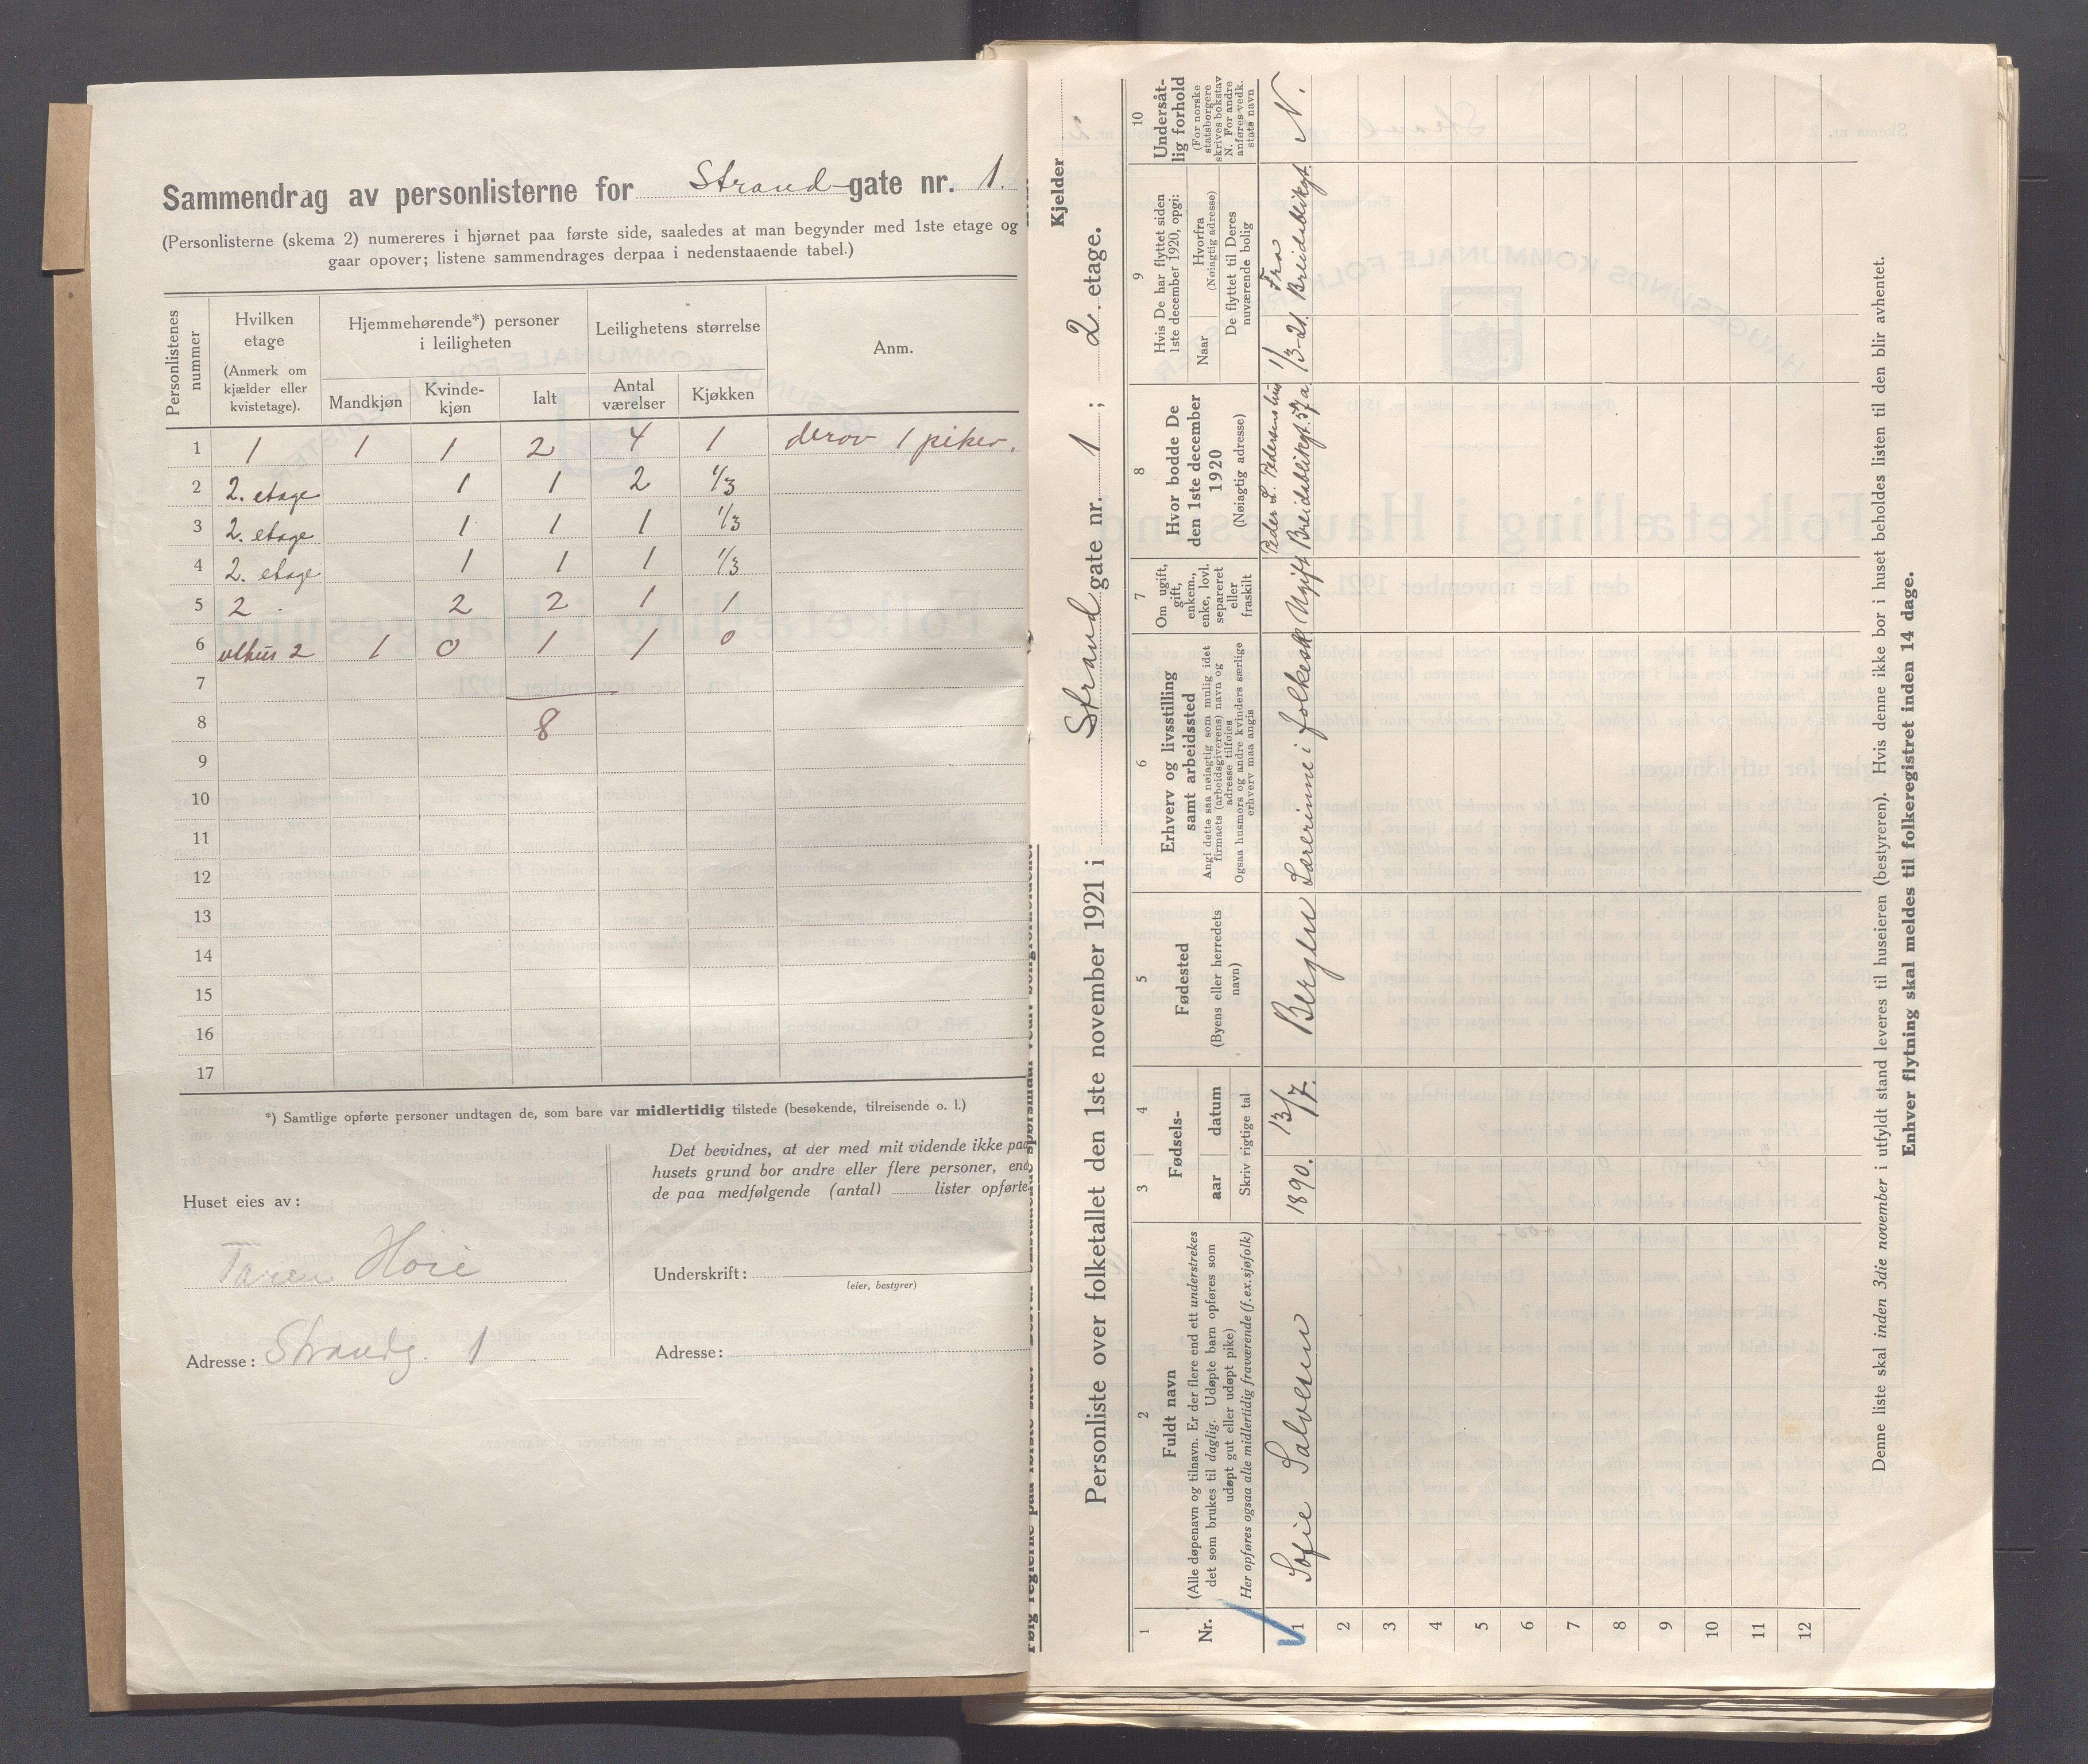 Sammendrag av personlisterne for Strand-gate nr. 1.
(Personlisterne (skema 2) numereres i hjørnet paa første side, saaledes at man begynder med 1ste etage og
gaar opover; listene sammendrages derpaa i nedenstaaende tabel.)
Personlistenes nummer
Hvilken etage
(Anmerk om kjælder eller kvistetage).
Hjemmehørende*) personer i leiligheten
Mandkjøn
Kvindekjøn
Ialt
Leilighetens størrelse
Antal værelser
Kjøkken
Anm.
1 1 1 1 2 4 1 derav 1 piker.
2 2. etage 1 1 2 1/3
3 2. etage 1 1 1 1/3
4 2. etage 1 1 1 1/3
5 2 . 2 2 1 1
6 uthus 2 1 0 1 1 0
7
8 8
9
10
11
12
13
14
15
16
17
*) Samtlige opførte personer undtagen de, som bare var midlertidig tilstede (besøkende, tilreisende o. l.)
Det bevidnes, at der med mit vidende ikke paa
husets grund bor andre eller flere personer, end
de paa medfølgende (antal) lister opførte
Huset eies av:
Høie
Underskrift:
(eier, bestyrer)
Adresse: Strandg. 1
Adresse:
Kjelder
Personliste over folketallet den 1ste november 1921 i Strand gate nr. 1 ; 2. etage.
1
Nr.
2
Fuldt navn
(Alle døpenavn og tilnavn. Er der flere end ett understrekes
det som brukes til daglig. Udøpte barn opføres som
udøpt gut eller udøpt pike)
Her opføres ogsaa alle midlertidig fraværende (f.ex. sjøfolk)
3 4
Fødsels-
aar datum
Skriv rigtige tal
5
Fødested
(Byens eller herredets
navn)
6
Erhverv og livsstilling
samt arbeidssted
Angi dette saa nøiagtig som mulig idet
firmaets (arbeidsgiverens) navn og
adresse tilføies
Ogsaa husmors og andre kvinders særlige
erhverv maa angis
7
Om ugift,
gift,
enkem.,
enke, lovl.
separeret
eller
fraskilt
8
Hvor bodde De
den 1ste december
1920
(Nøiagtig adresse)
9
Hvis De har flyttet siden
1ste december 1920, opgi:
Naar
Hvorfra
(Nøiagtig adresse)
De flyttet til Deres
nuværende bolig
10
Undersåtlig forhold
(For norske
statsborgere
skrives bokstav
N. For andre
anføres vedk.
stats navn
1 Sofie Salvesen 1890. 13/7. Bergen Lærerinne i folkesk Ugift Peder L. Pedersens hus Breidablikgt. 57a 1/3-21. Fra Breidablikgt. N.
2
3
4
5
6
7
8
9
10
11
12
Denne liste skal inden 3die november i utfyldt stand leveres til huseieren (bestyreren). Hvis denne ikke bor i huset beholdes listen til den blir avhentet.
Enhver flytning skal meldes til folkeregistret inden 14 dage.